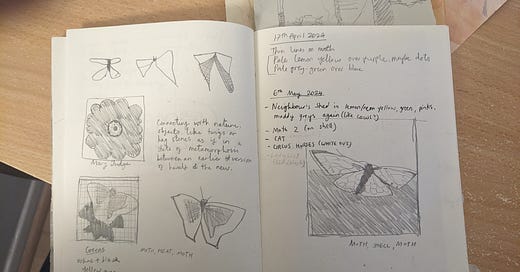 Mary Judge
Connecting with nature,
objects like twigs or
as if in a
state of metamorphosis
between an earlier version
of herself & the new.
Greens
MOTH, MOTH
yellow
17th April 2024
Thin lines on moth
Pale lemon yellow over purple, maybe dots
Pale grey-green over blue
6th May 2024
- Neighbour's shed in lemon/rem yellow, green, pinks,
muddy greys again (like Cowls?)
- Moth 2 (on shell)
- CAT
- CIRCUS HORSES (WHITE OUT)
MOTH, SHELL, MOTH